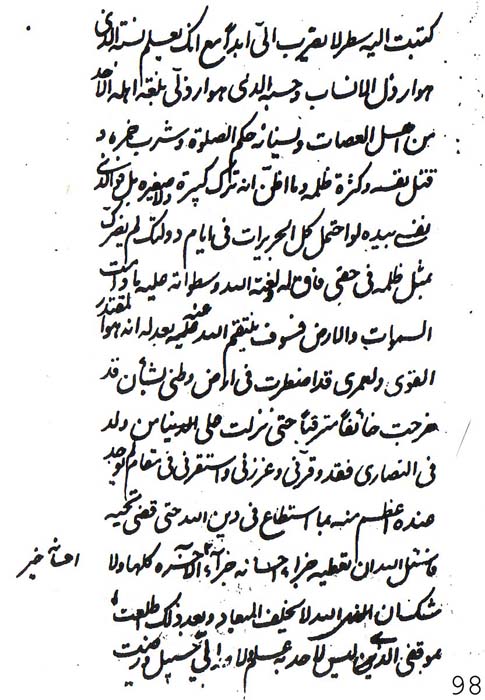 كتبت اليه سطر لا يقرب اليّ ابداً مع انك تعلم نسبته الذى
هو ارذل الانساب و حسبه الذى هو ارذل
من اهل العصات و نسيانه حكم الصلوة و شرب خمره و
قتل نفسه و كثرة ظلمه و ما اظن انه ترك كبيرة ولا صغيرة بل فو الذى
نفسى بيده لو احتمل كل الجريرات فى ايام دولتك لم يضرك
بمثل ظلمه فى حقى فاق له لعنة الله و سطواته عليه ما دامت
السموات و الارض فسوف ينتقم الله عنه عليه بعدله انه هو المقتدر
القوى ولعمرى قد اضطرت فى ارض وطنى بشأن قد
خرجت خائفاً مترقباً حتى نزلت على الدنيا من ولد
فى النصارى فقد وقرنى و عززنى و استقرنى فى مقام لم يوجد
عنده اعظم منه بما استطاع فى دين الله حتى قضى نحبه
فاسئل الله ان يعطيه جزاء احسانه جزاء الآخرة كلها ولا
شك ان الله لا يخلف الميعاد و بعد ذلك اطلعت
بموقفى الذى ليس لاحد به علم الىّ سبيل و رضيت
احسانه خير
98